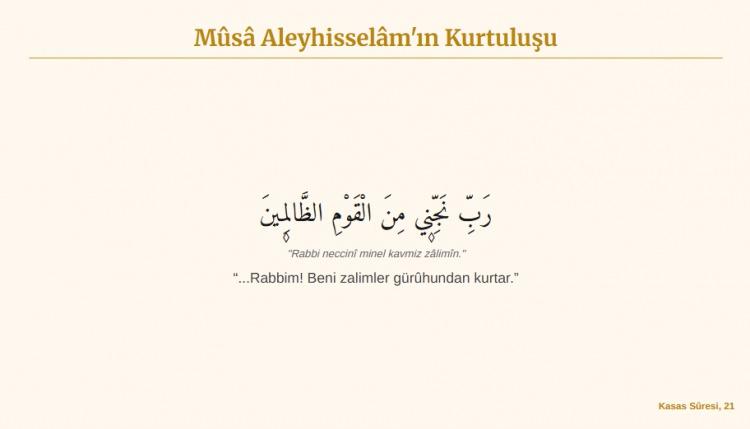 Mûsâ Aleyhisselâm'ın Kurtuluşu
رَبِّ نَجِّنِي مِنَ الْقَوْمِ الظَّالِمِينَ
"Rabbi neccinî minel kavmiz zâlimîn."
“...Rabbim! Beni zalimler gürûhundan kurtar.”
Kasas Sûresi, 21